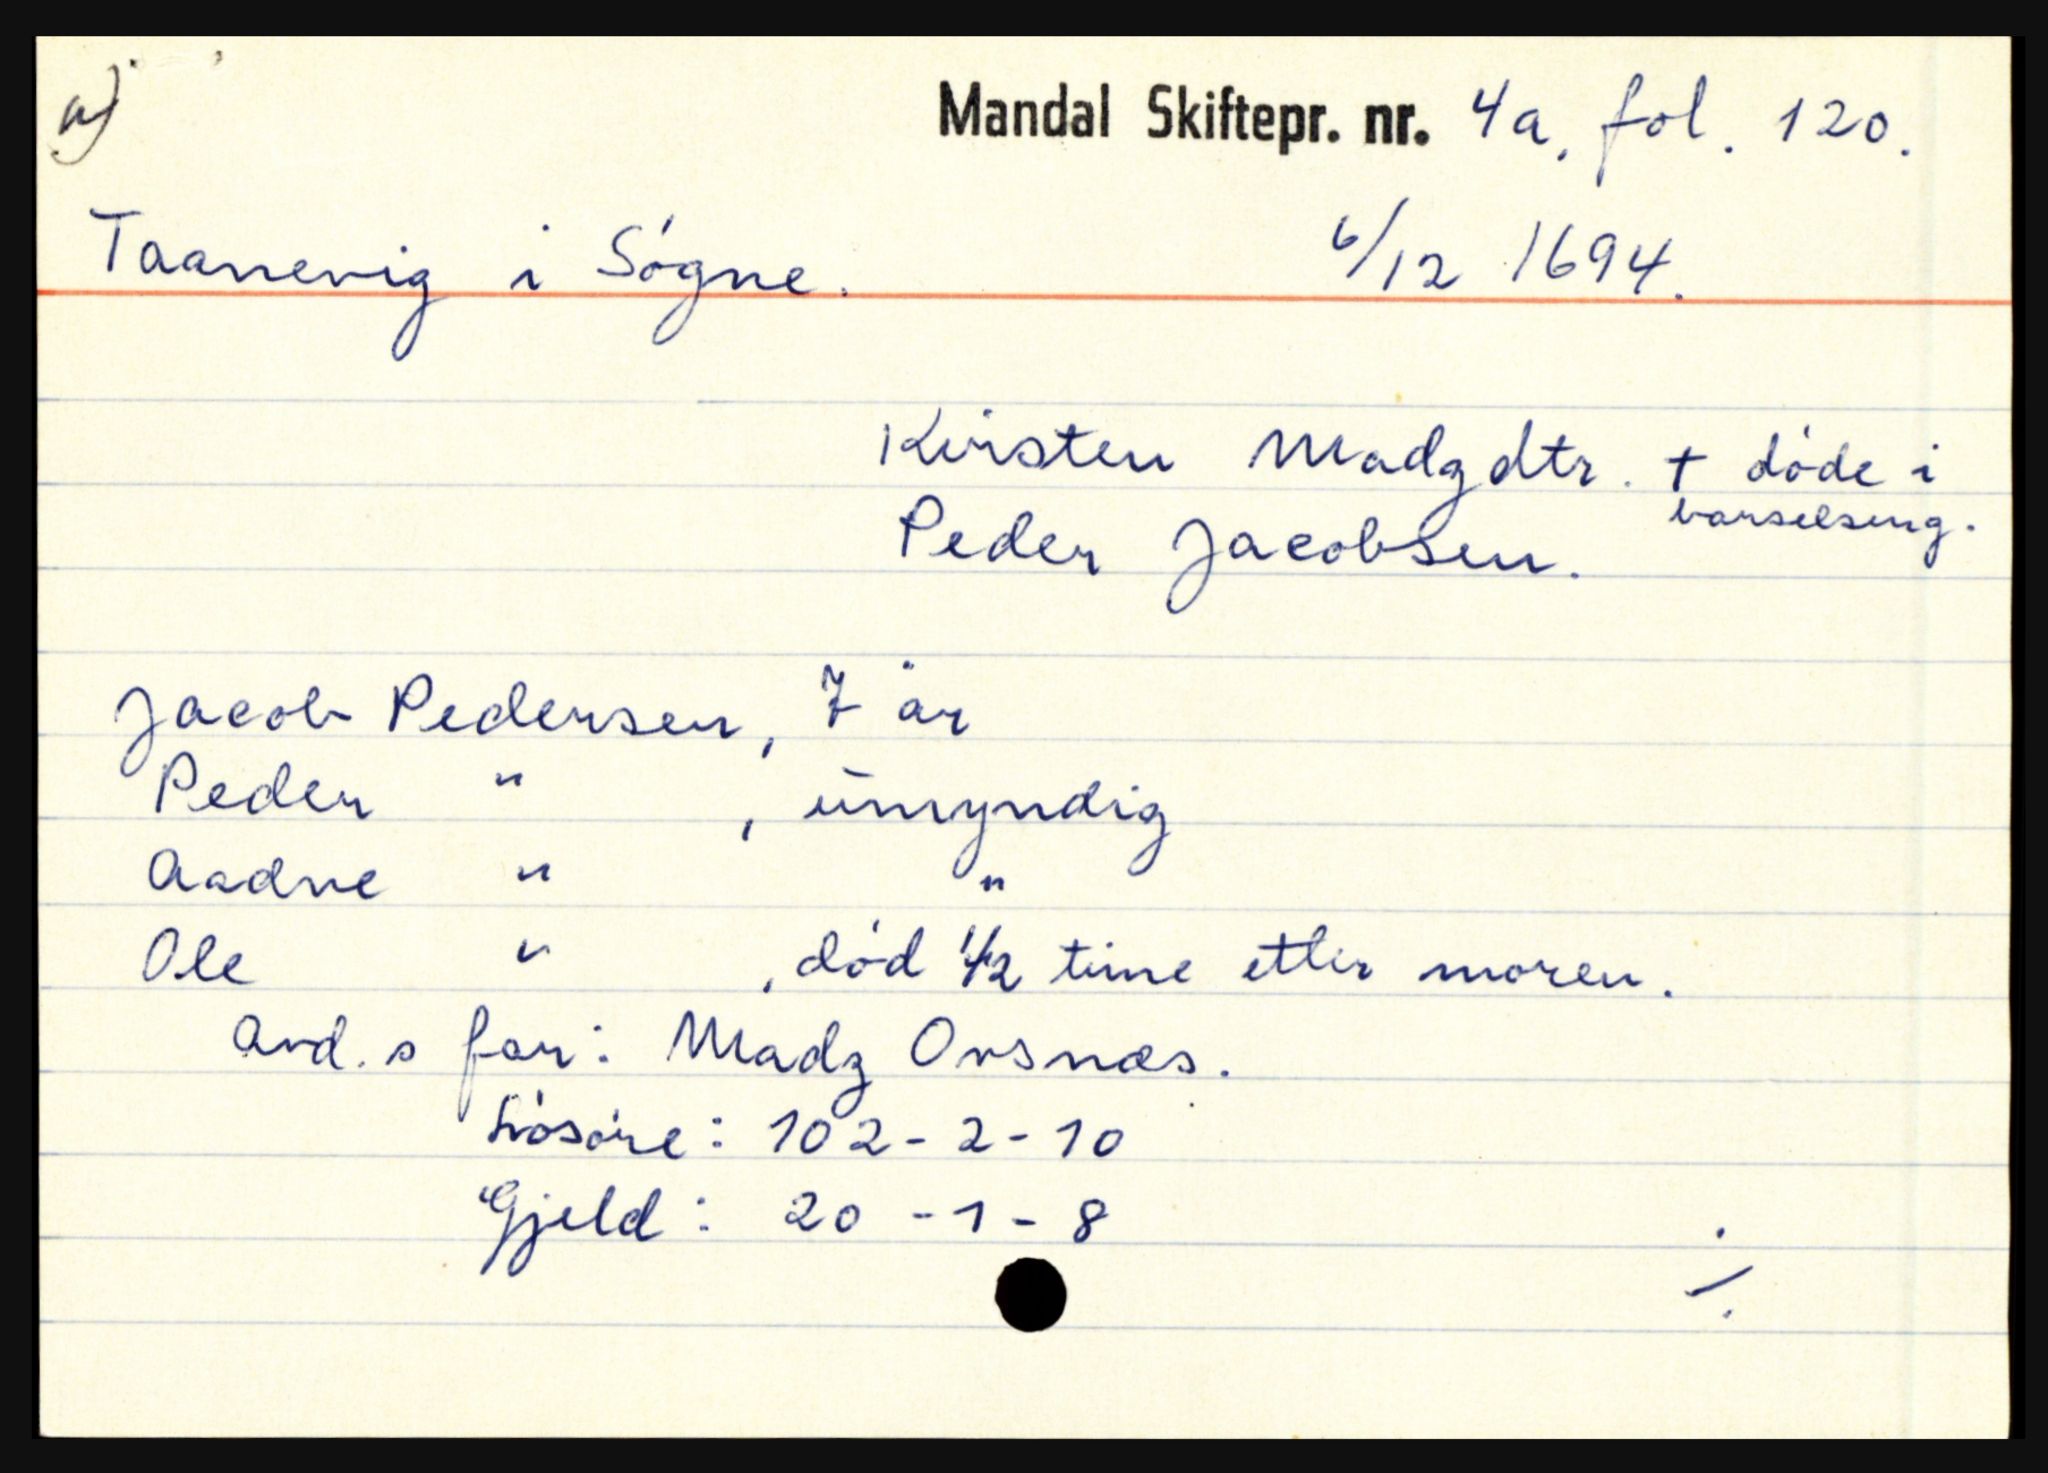 a)
Mandal Skiftepr. nr. 4a, fol. 120.
Taanevig i Søgne. 6/12 1694.
Kirsten Madzdtr. + døde i
barselseng.
Peder Jacobsen.
Jacob Pedersen, 7 år
Peder " , umyndig
Aadne " "
Ole " , død 1/2 time etter moren.
Avd.s far: Madz Orsnæs.
Løsøre: 102-2-10
Gjeld: 20-1-8
./.